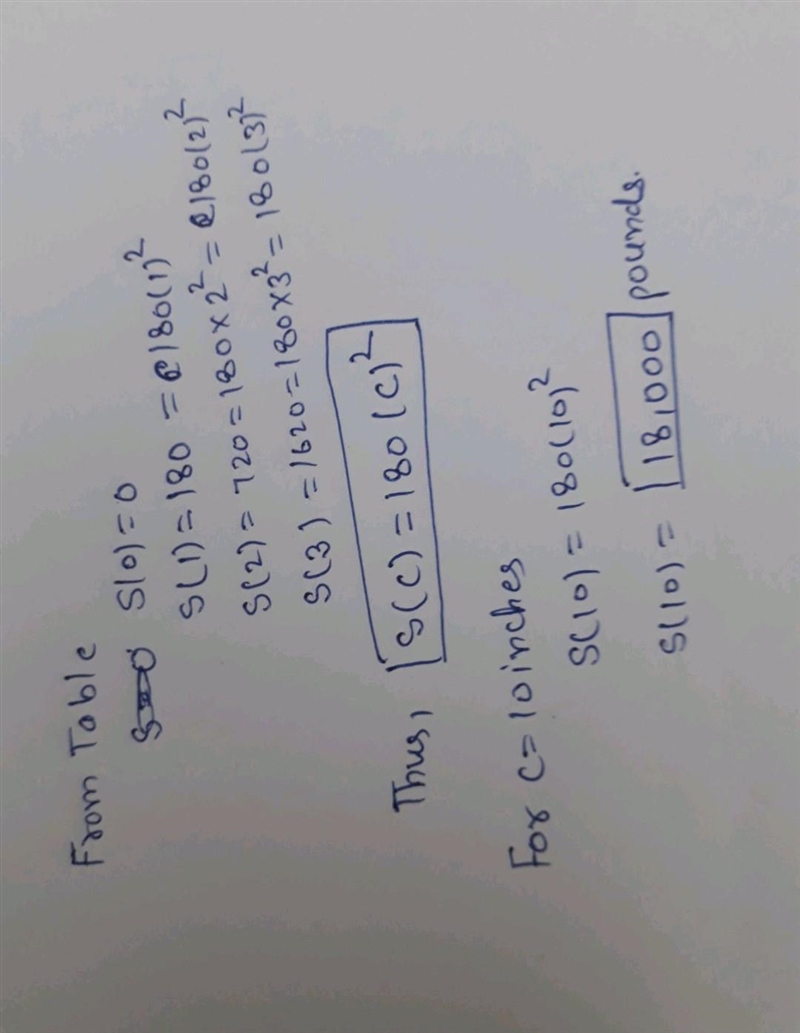 From Table
S(0)=0
S(1)=180 = 180(1)²
S(2)=720=180×2² = 180(2)²
S(3)=1620=180×3² = 180(3)²
Thus, S(C)=180(C)²
For C=10inches
S(10)=180(10)²
S(10)= 18,000 pounds.